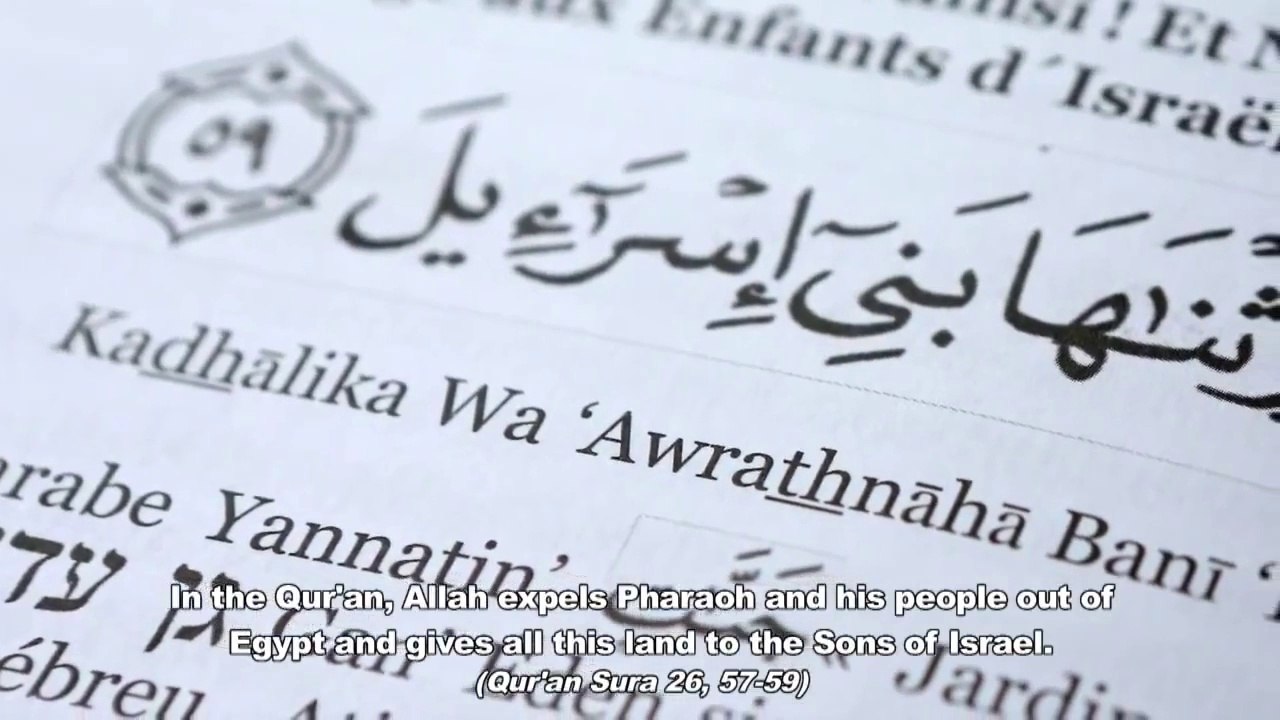 insi ! Et N
aux Enfants d´Israë
بَنِيٓ إِسْرَآءِيلَ ٥٩
Kadhālika Wa ‘Awrathnāhā Banī
arabe Yannatin’ جَنَّت Jardin
גן עד Gan Eden si
ébreu
In the Qur'an, Allah expels Pharaoh and his people out of
Egypt and gives all this land to the Sons of Israel.
(Qur'an Sura 26, 57-59)